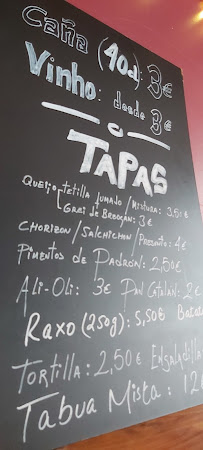 Caña (40cl): 3€
Vinho: desde 3€
TAPAS
Queijo-tetilla fumado/mistura: 3,50€
Grei de Bregogán: 3€
Chorizon/Salchichon/Presunto: 4€
Pimentos de Padrón: 2,50€
Ali-Oli: 3€ Pan Catalán: 2€
Raxo (250g): 5,50€
Tortilla: 2,50€ Ensaladilla
Tabua Mista: 12